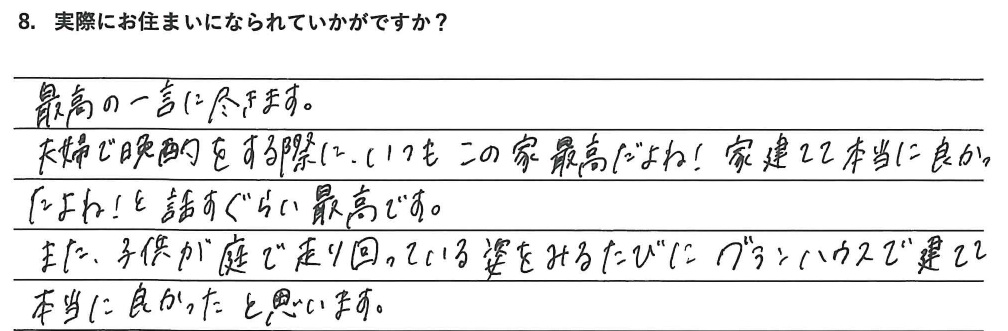 8. 実際にお住まいになられていかがですか？
最高の一言に尽きます。
夫婦で晩酌をする際に、いつもこの家最高だよね！家建てて本当に良かっ
たよね！と話すぐらい最高です。
また、子供が庭で走り回っている姿をみるたびにグランハウスで建てて
本当に良かったと思います。